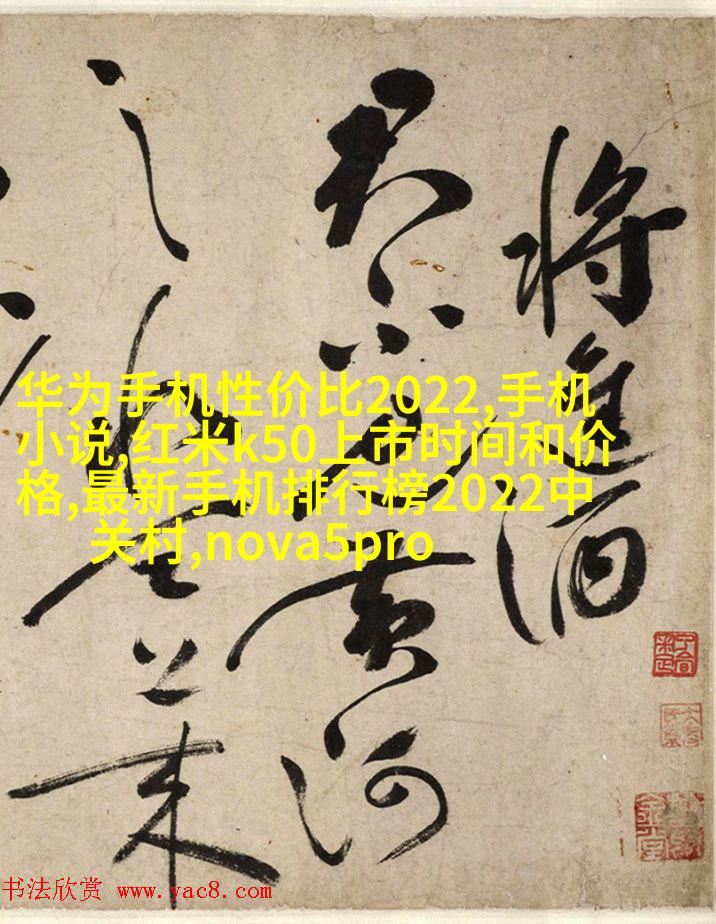 将進酒
君不見黄河
之水天上来
华为手机性价比2022,手机
小说,红米k50上市时间和价
格,最新手机排行榜2022中
关村,nova5pro
书法欣赏 www.yac8.com